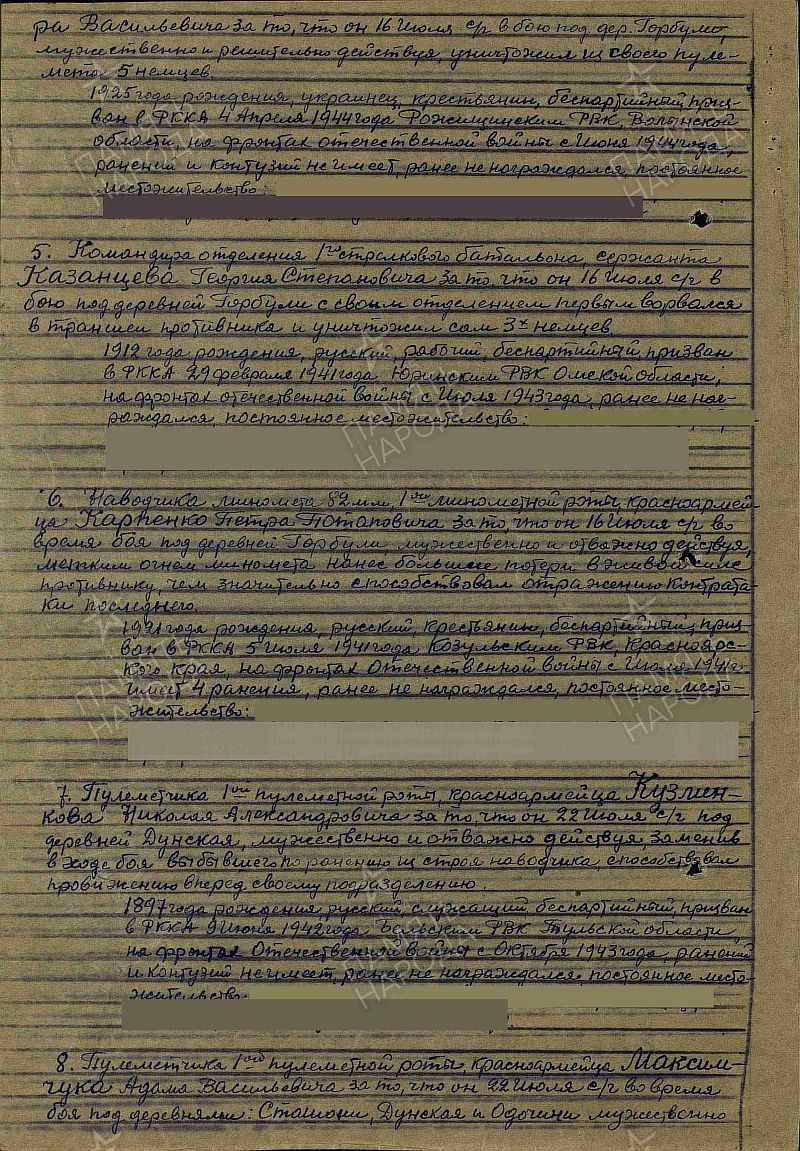 ра Васильевича за то, что он 16 Июля с/г в бою под дер. Горбули,
мужественно и решительно действуя, уничтожил из своего пуле-
мета 5 немцев.
1925 года рождения, украинец, крестьянин, беспартийный, приз-
ван в РККА 4 Апреля 1944 года Рожищинским РВК, Волынской
области, на фронтах отечественной войны с Июня 1944 года,
ранений и контузий не имеет, ранее не награждался, постоянное
местожительство:
5. Командира отделения 1го стрелкового батальона, сержанта
Казанцева Георгия Степановича за то, что он 16 Июля с/г в
бою под деревней Горбули с своим отделением первым ворвался
в траншеи противника и уничтожил сам 3х немцев.
1912 года рождения, русский, рабочий, беспартийный, призван
в РККА 29 февраля 1941 года Юргинским РВК Омской области,
на фронтах отечественной войны с Июля 1943 года, ранее не наг-
раждался, постоянное местожительство:
6. Наводчика миномета 82 мм, 1ой минометной роты, красноармей-
ца Карпенко Петра Потаповича за то, что он 16 Июля с/г во
время боя под деревней Горбули, мужественно и отважно действуя,
метким огнем миномета нанес большие потери в живой силе
противнику, чем значительно способствовал отражению контрата-
ки последнего.
1921 года рождения, русский, крестьянин, беспартийный, приз-
ван в РККА 5 Июля 1941 года Козульским РВК, Красноярс-
кого края, на фронтах Отечественной войны с Июля 1941 г.
имеет 4 ранения, ранее не награждался, постоянное место-
жительство:
7. Пулеметчика 1ой пулеметной роты, красноармейца Кузмин-
кова Николая Александровича за то, что он 22 Июля с/г под
деревней Дунская, мужественно и отважно действуя заменив
в ходе боя выбывшего по ранению из строя наводчика, способствовал
продвижению вперед своему подразделению.
1897 года рождения, русский, служащий, беспартийный, призван
в РККА 9 Июня 1942 года РВК Тульской области,
на фронтах Отечественной войны с Октября 1943 года, ранений
и контузий не имеет, ранее не награждался, постоянное место-
жительство:
8. Пулеметчика 1ой пулеметной роты, красноармейца Максим-
чука Адама Васильевича за то, что он 22 Июля с/г во время
боя под деревнями: Сташони, Дунская и Одочини мужественно